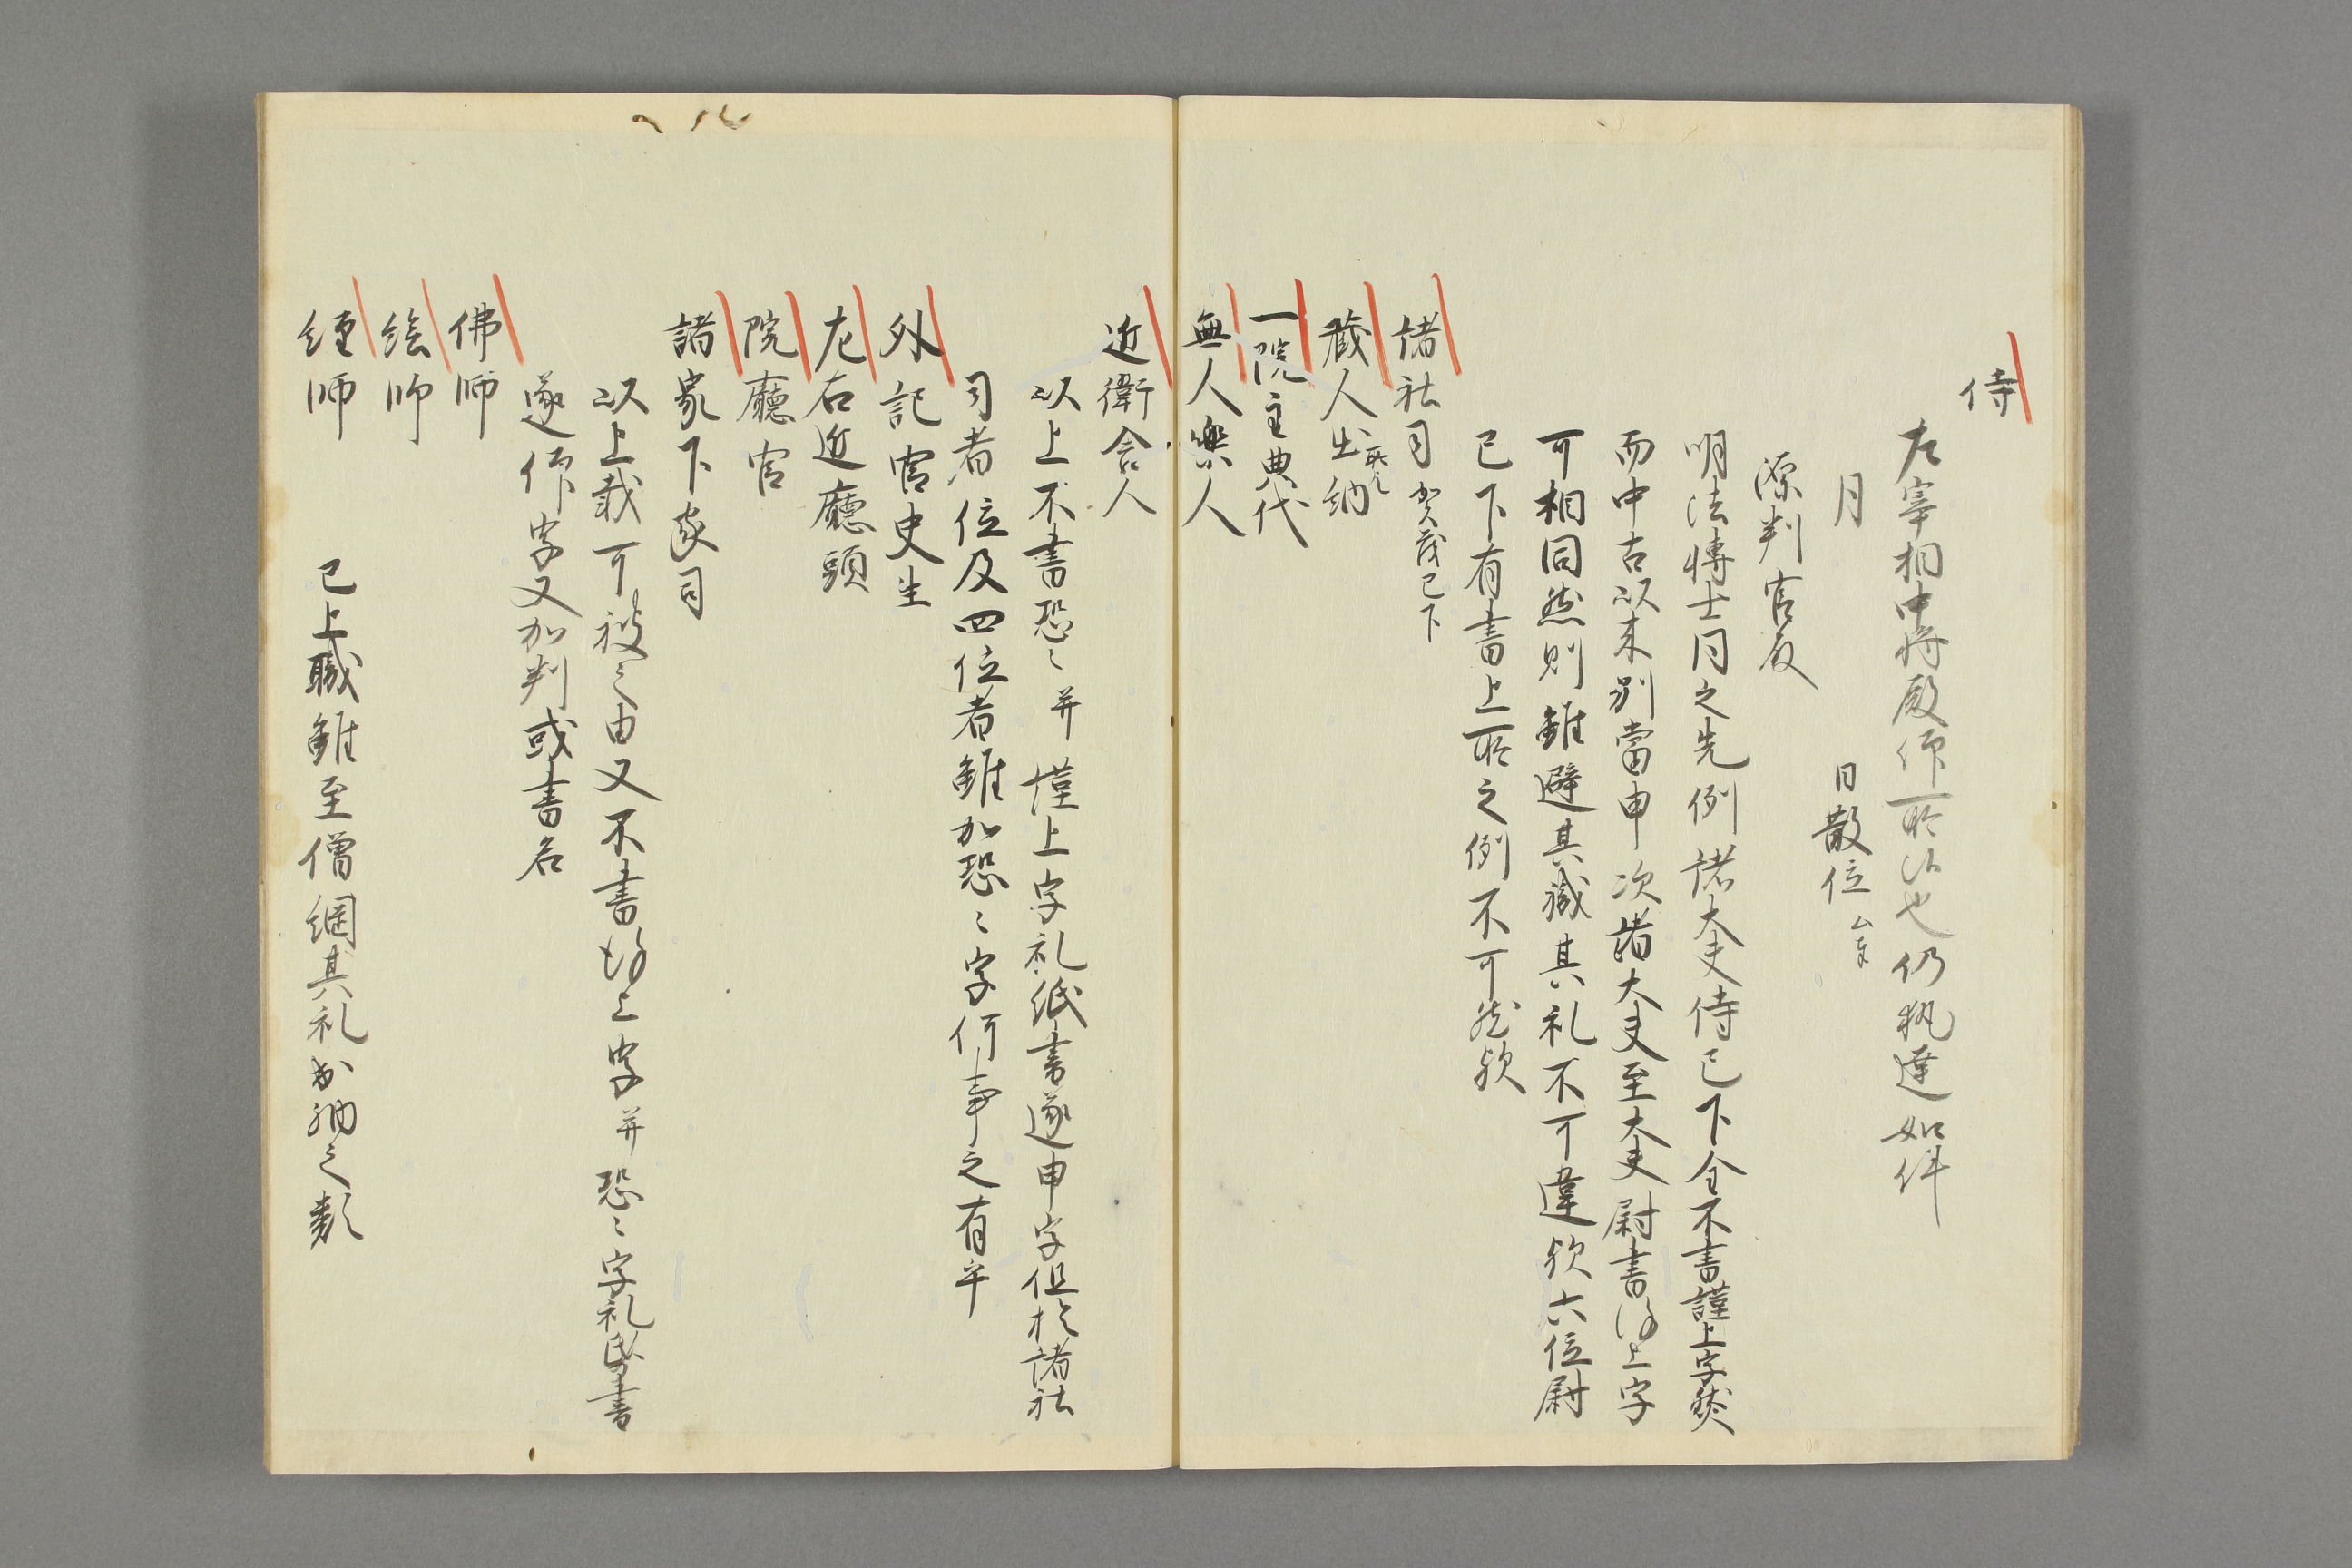 侍
左宰相中将殿仰所候也仍執達如件
月　日散位
源判官殿
明法博士同之先例諸大夫侍已下全不書謹上字然
而中古以来別當申次諸大夫至大夫尉書謹上字
可相同然則雖避其職其礼不可違欤六位尉
已下有書上所之例不可然欤
諸社司賀茂已下
蔵人出納
一院主典代
無人樂人
近衛舎人
以上不書恐々并謹上字礼紙書遂申字但於諸社
司者位及四位者雖加恐々字何事之有乎
外記官史生
左右近廳頭
院廳官
諸家下家司
以上載可被之由又不書謹上字并恐々字礼紙書
遂仰字又加判或書名
佛師
繪師
經師
已上職雖至僧綱其礼出納之類